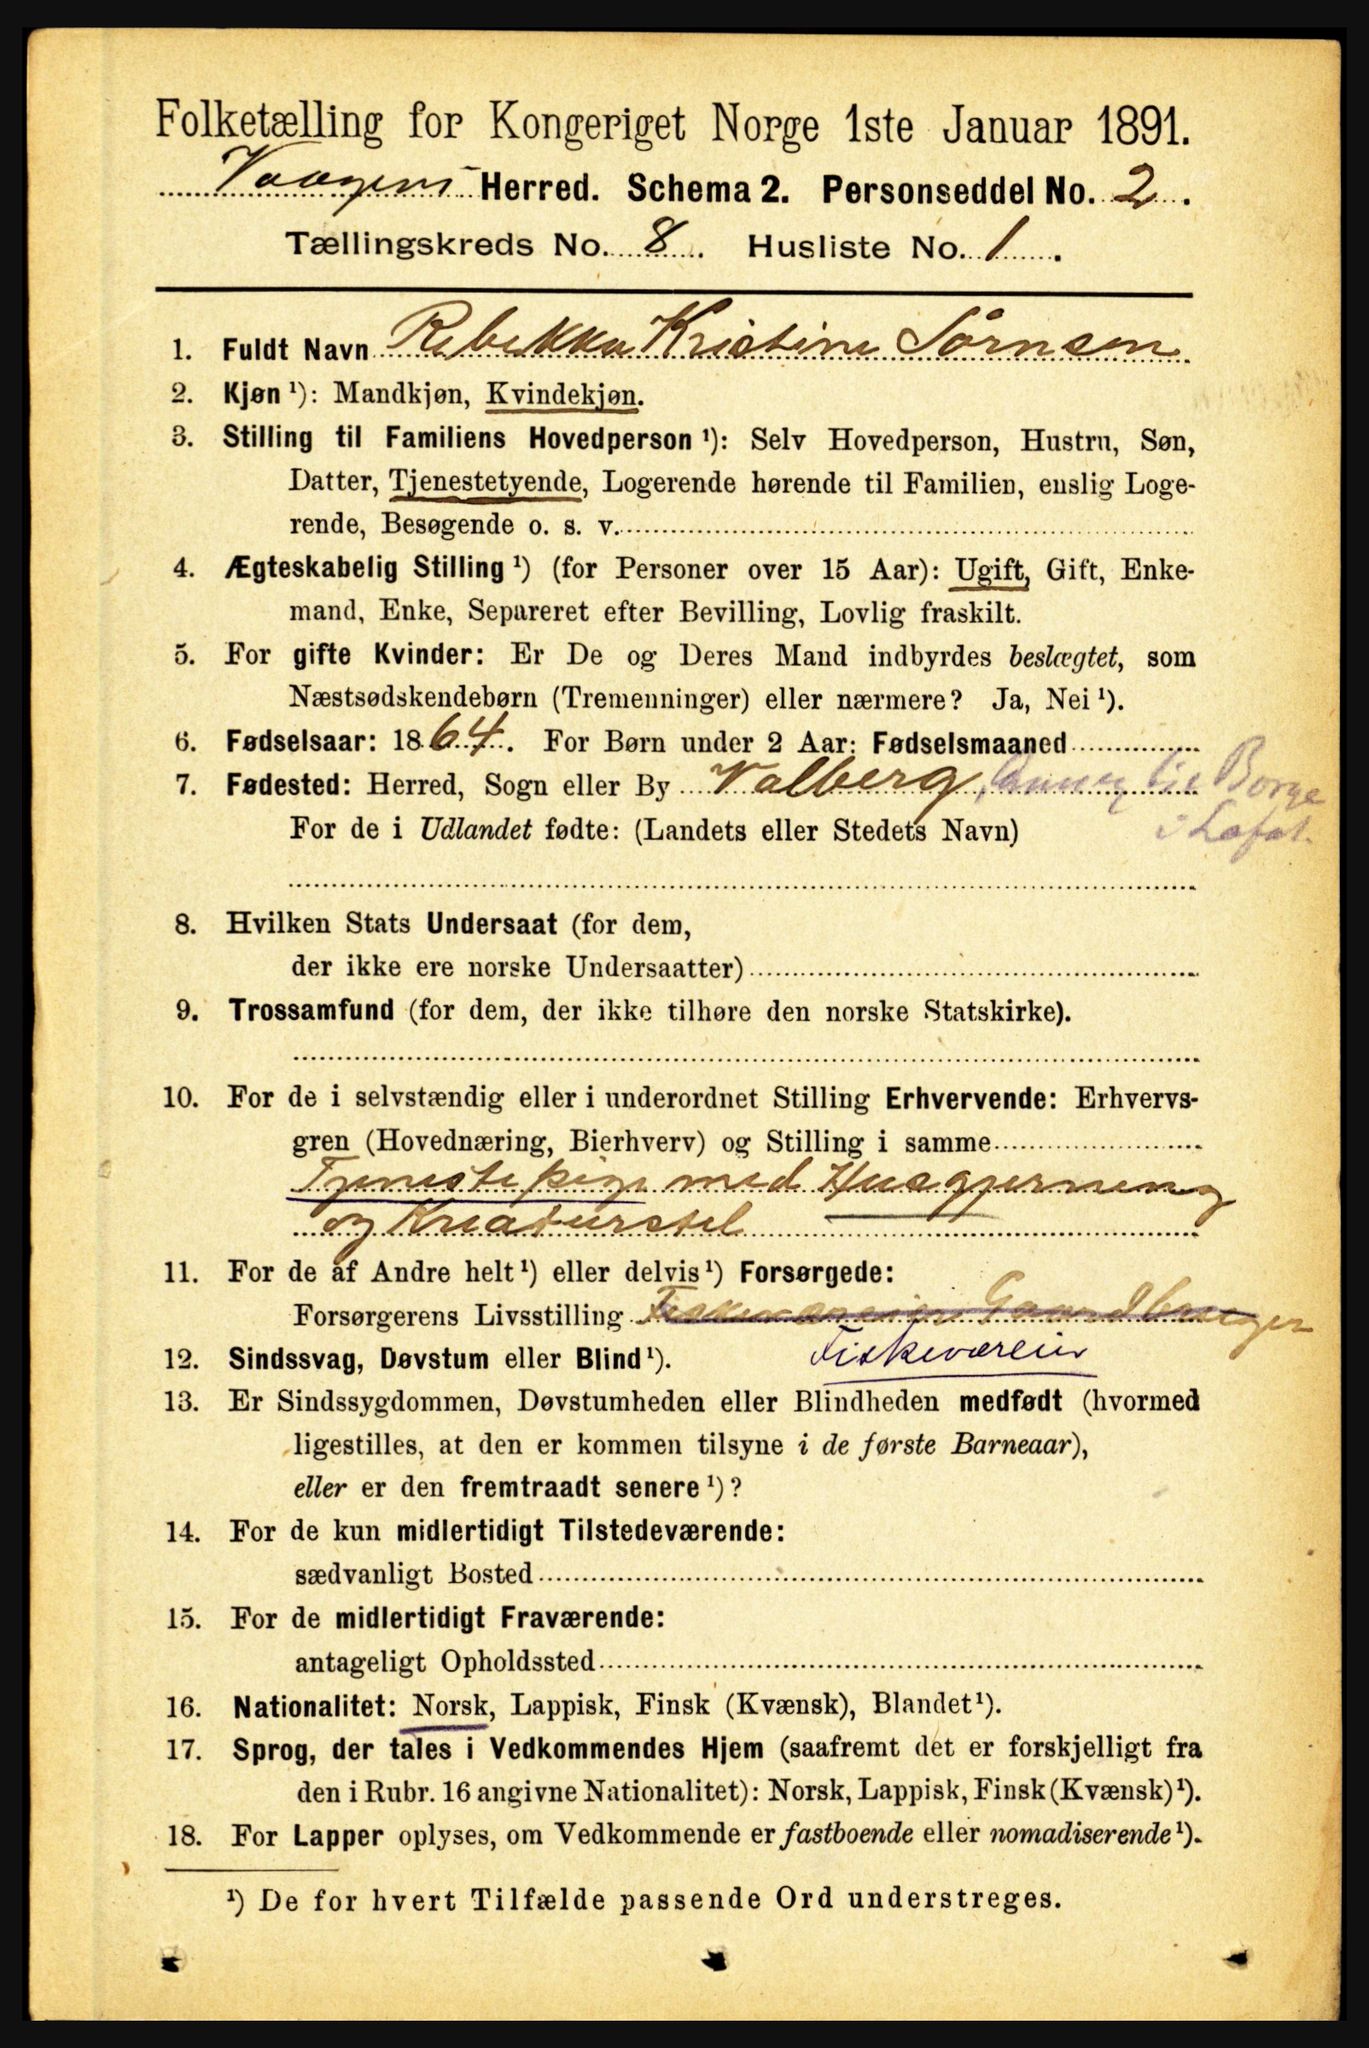 Folketælling for Kongeriget Norge 1ste Januar 1891.
Vaagens Herred. Schema 2. Personseddel No. 2.
Tællingskreds No. 8. Husliste No. 1.
1. Fuldt Navn Rebekka Kristine Sørnsen
2. Kjøn ¹): Mandkjøn, Kvindekjøn.
3. Stilling til Familiens Hovedperson ¹): Selv Hovedperson, Hustru, Søn,
Datter, Tjenestetyende, Logerende hørende til Familien, enslig Loge-
rende, Besøgende o. s. v.
4. Ægteskabelig Stilling ¹) (for Personer over 15 Aar): Ugift, Gift, Enke-
mand, Enke, Separeret efter Bevilling, Lovlig fraskilt.
5. For gifte Kvinder: Er De og Deres Mand indbyrdes beslægtet, som
Næstsødskendebørn (Tremenninger) eller nærmere? Ja, Nei ¹).
6. Fødselsaar: 1864. For Børn under 2 Aar: Fødselsmaaned
7. Fødested: Herred, Sogn eller By Valberg, Annex til Borge
i Lofot.
For de i Udlandet fødte: (Landets eller Stedets Navn)
8. Hvilken Stats Undersaat (for dem,
der ikke ere norske Undersaatter)
9. Trossamfund (for dem, der ikke tilhøre den norske Statskirke).
10. For de i selvstændig eller i underordnet Stilling Erhvervende: Erhvervs-
gren (Hovednæring, Bierhverv) og Stilling i samme
Tjenestepige med Husgjerning
og Kreaturstel
11. For de af Andre helt ¹) eller delvis ¹) Forsørgede:
Forsørgerens Livsstilling Fiskeværeier Gaardbruger
Fiskeværeier
12. Sindssvag, Døvstum eller Blind ¹).
13. Er Sindssygdommen, Døvstumheden eller Blindheden medfødt (hvormed
ligestilles, at den er kommen tilsyne i de første Barneaar),
eller er den fremtraadt senere ¹)?
14. For de kun midlertidigt Tilstedeværende:
sædvanligt Bosted
15. For de midlertidigt Fraværende:
antageligt Opholdssted
16. Nationalitet: Norsk, Lappisk, Finsk (Kvænsk), Blandet ¹).
17. Sprog, der tales i Vedkommendes Hjem (saafremt det er forskjelligt fra
den i Rubr. 16 angivne Nationalitet): Norsk, Lappisk, Finsk (Kvænsk) ¹).
18. For Lapper oplyses, om Vedkommende er fastboende eller nomadiserende ¹).
¹) De for hvert Tilfælde passende Ord understreges.